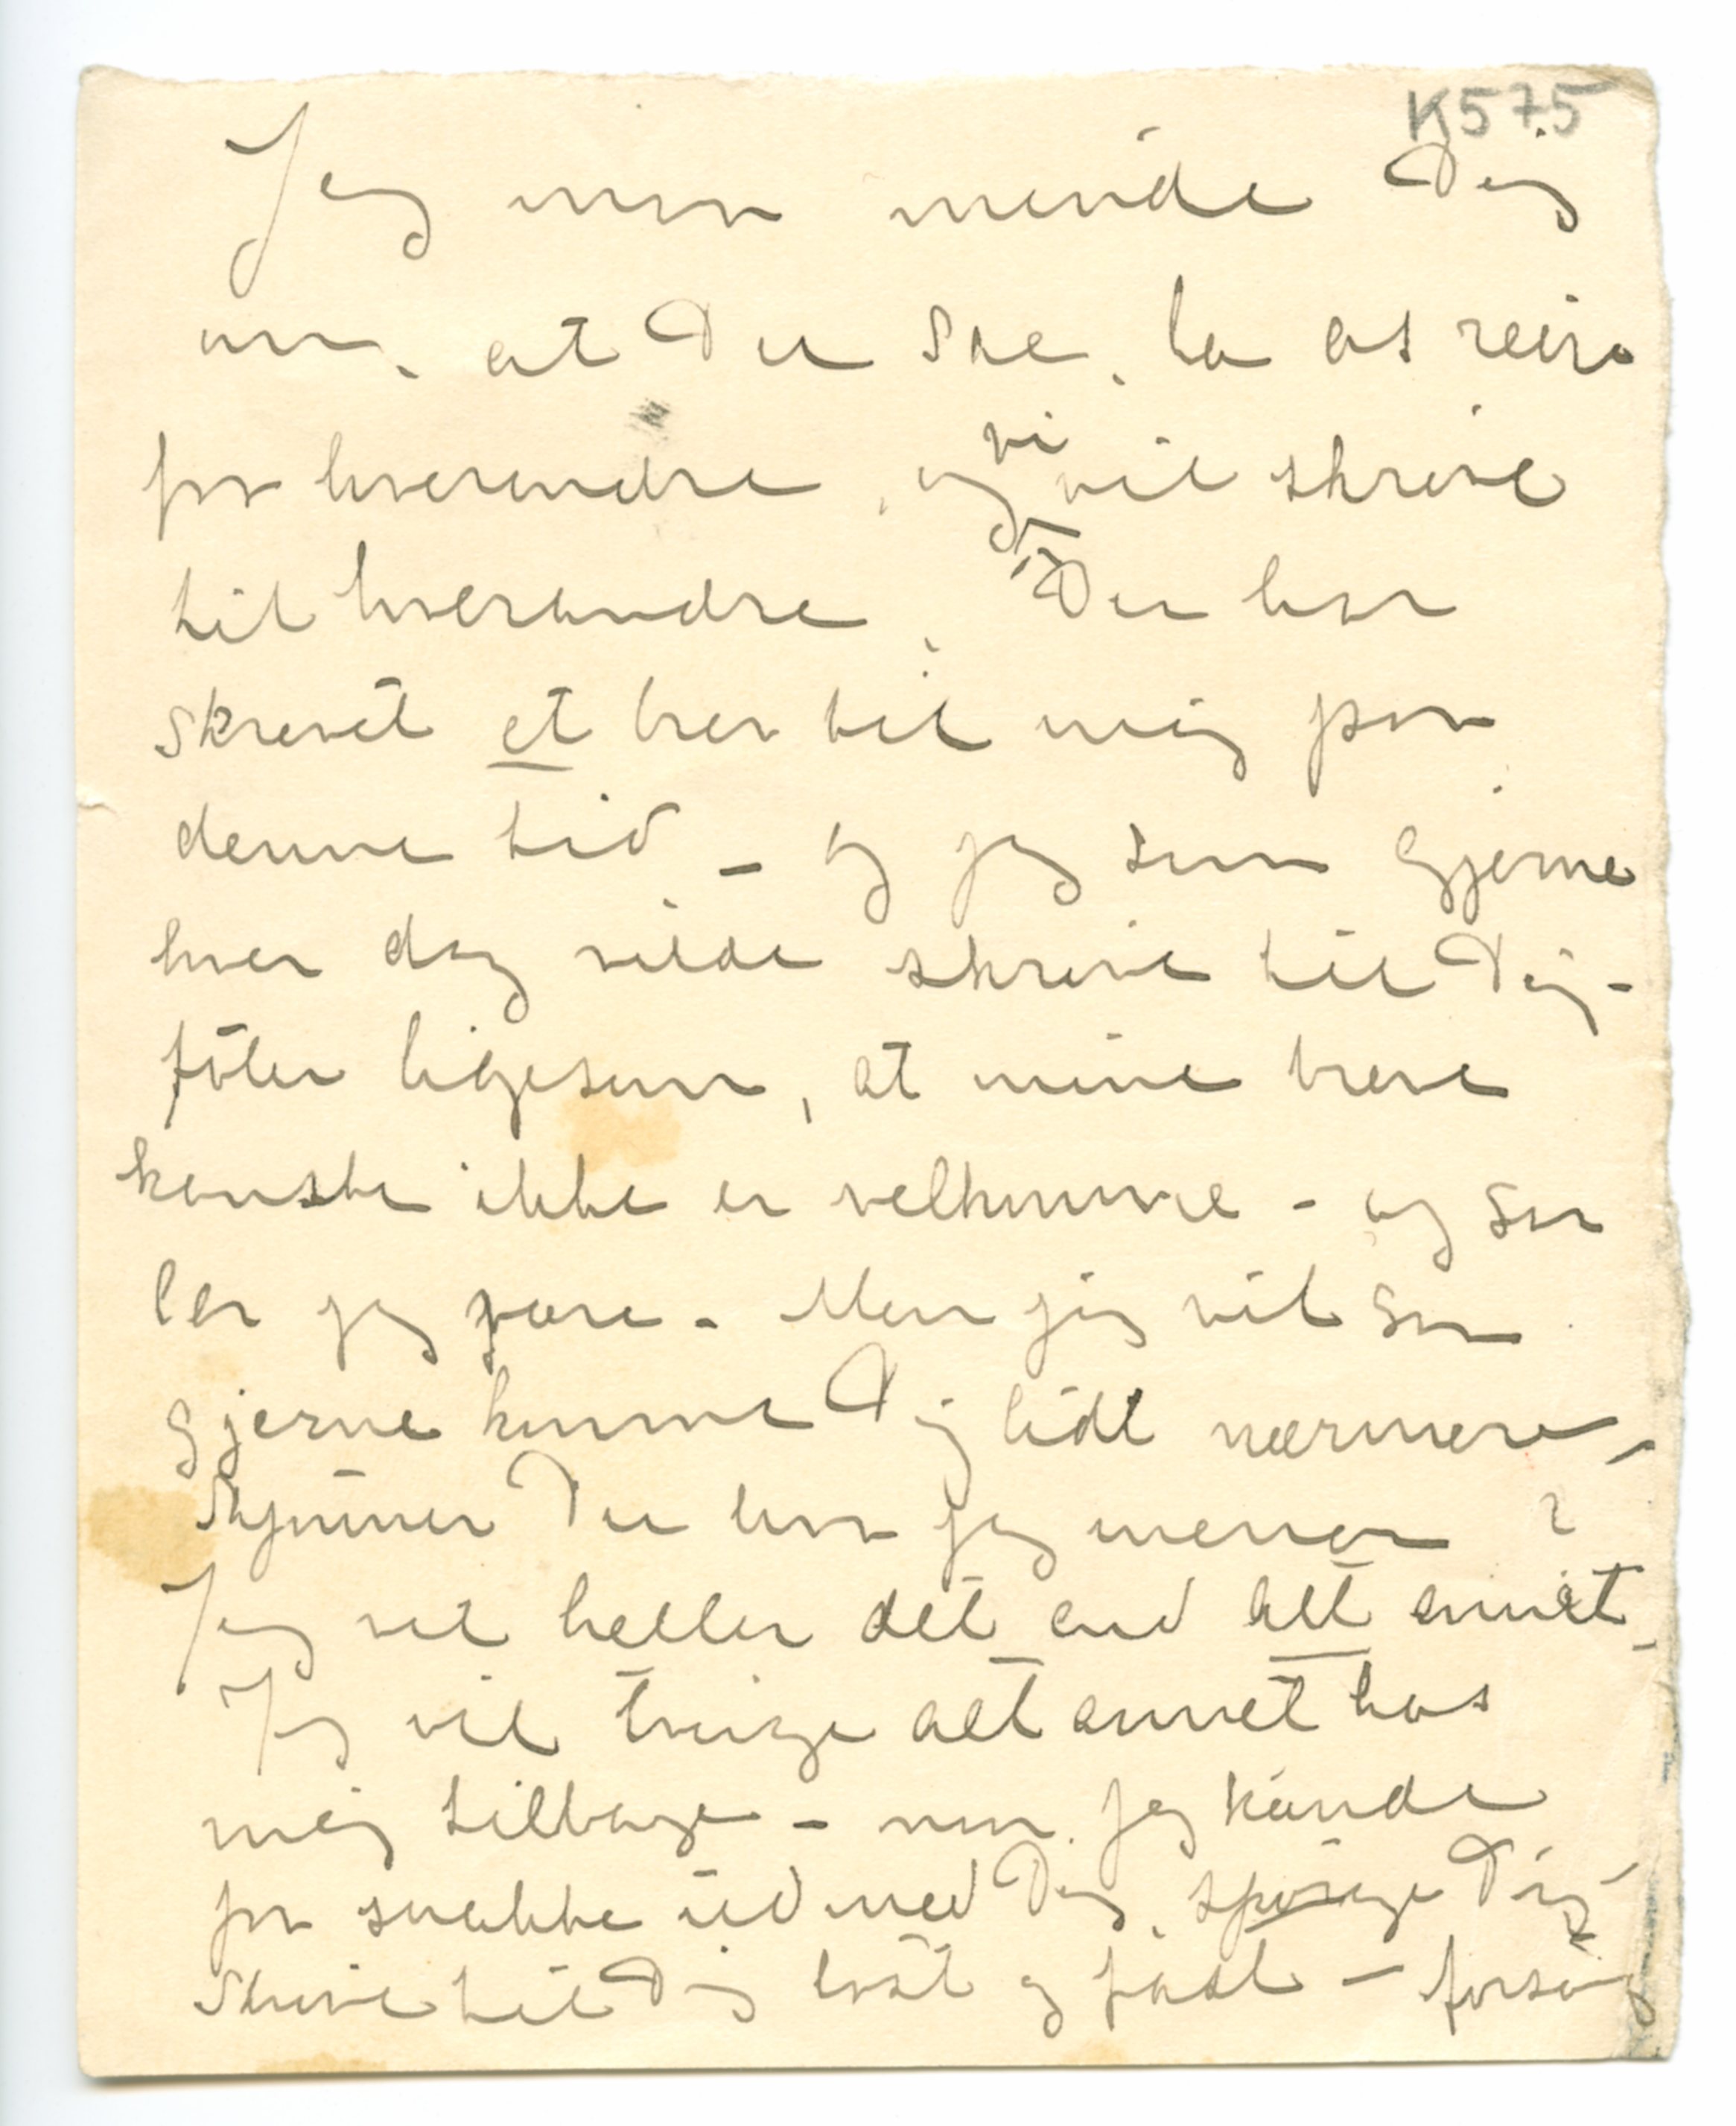 K575
Jeg maa minde Dig
om, at Du sae, la os reise
fra hverandre, og vi vil skrive
til hverandre, Du har
skrevet et brev til mig paa
denne tid – og jeg som gjerne
hver dag vilde skrive til Dig –
föler ligesom, at mine breve
kanske ikke er velkomne – og saa
ler jeg være – Men jeg vil saa
gjerne komme Dig lidt nærmere,
Skjønner Du hva jeg mener?
Jeg vil heller det end alt annet,
Jeg vil tvinge alt annet hos
mig tilbage – naar jeg kunde
faa snakke ud med Dig, spørge Dig
Skrive til Dig löst og fast – forsøg